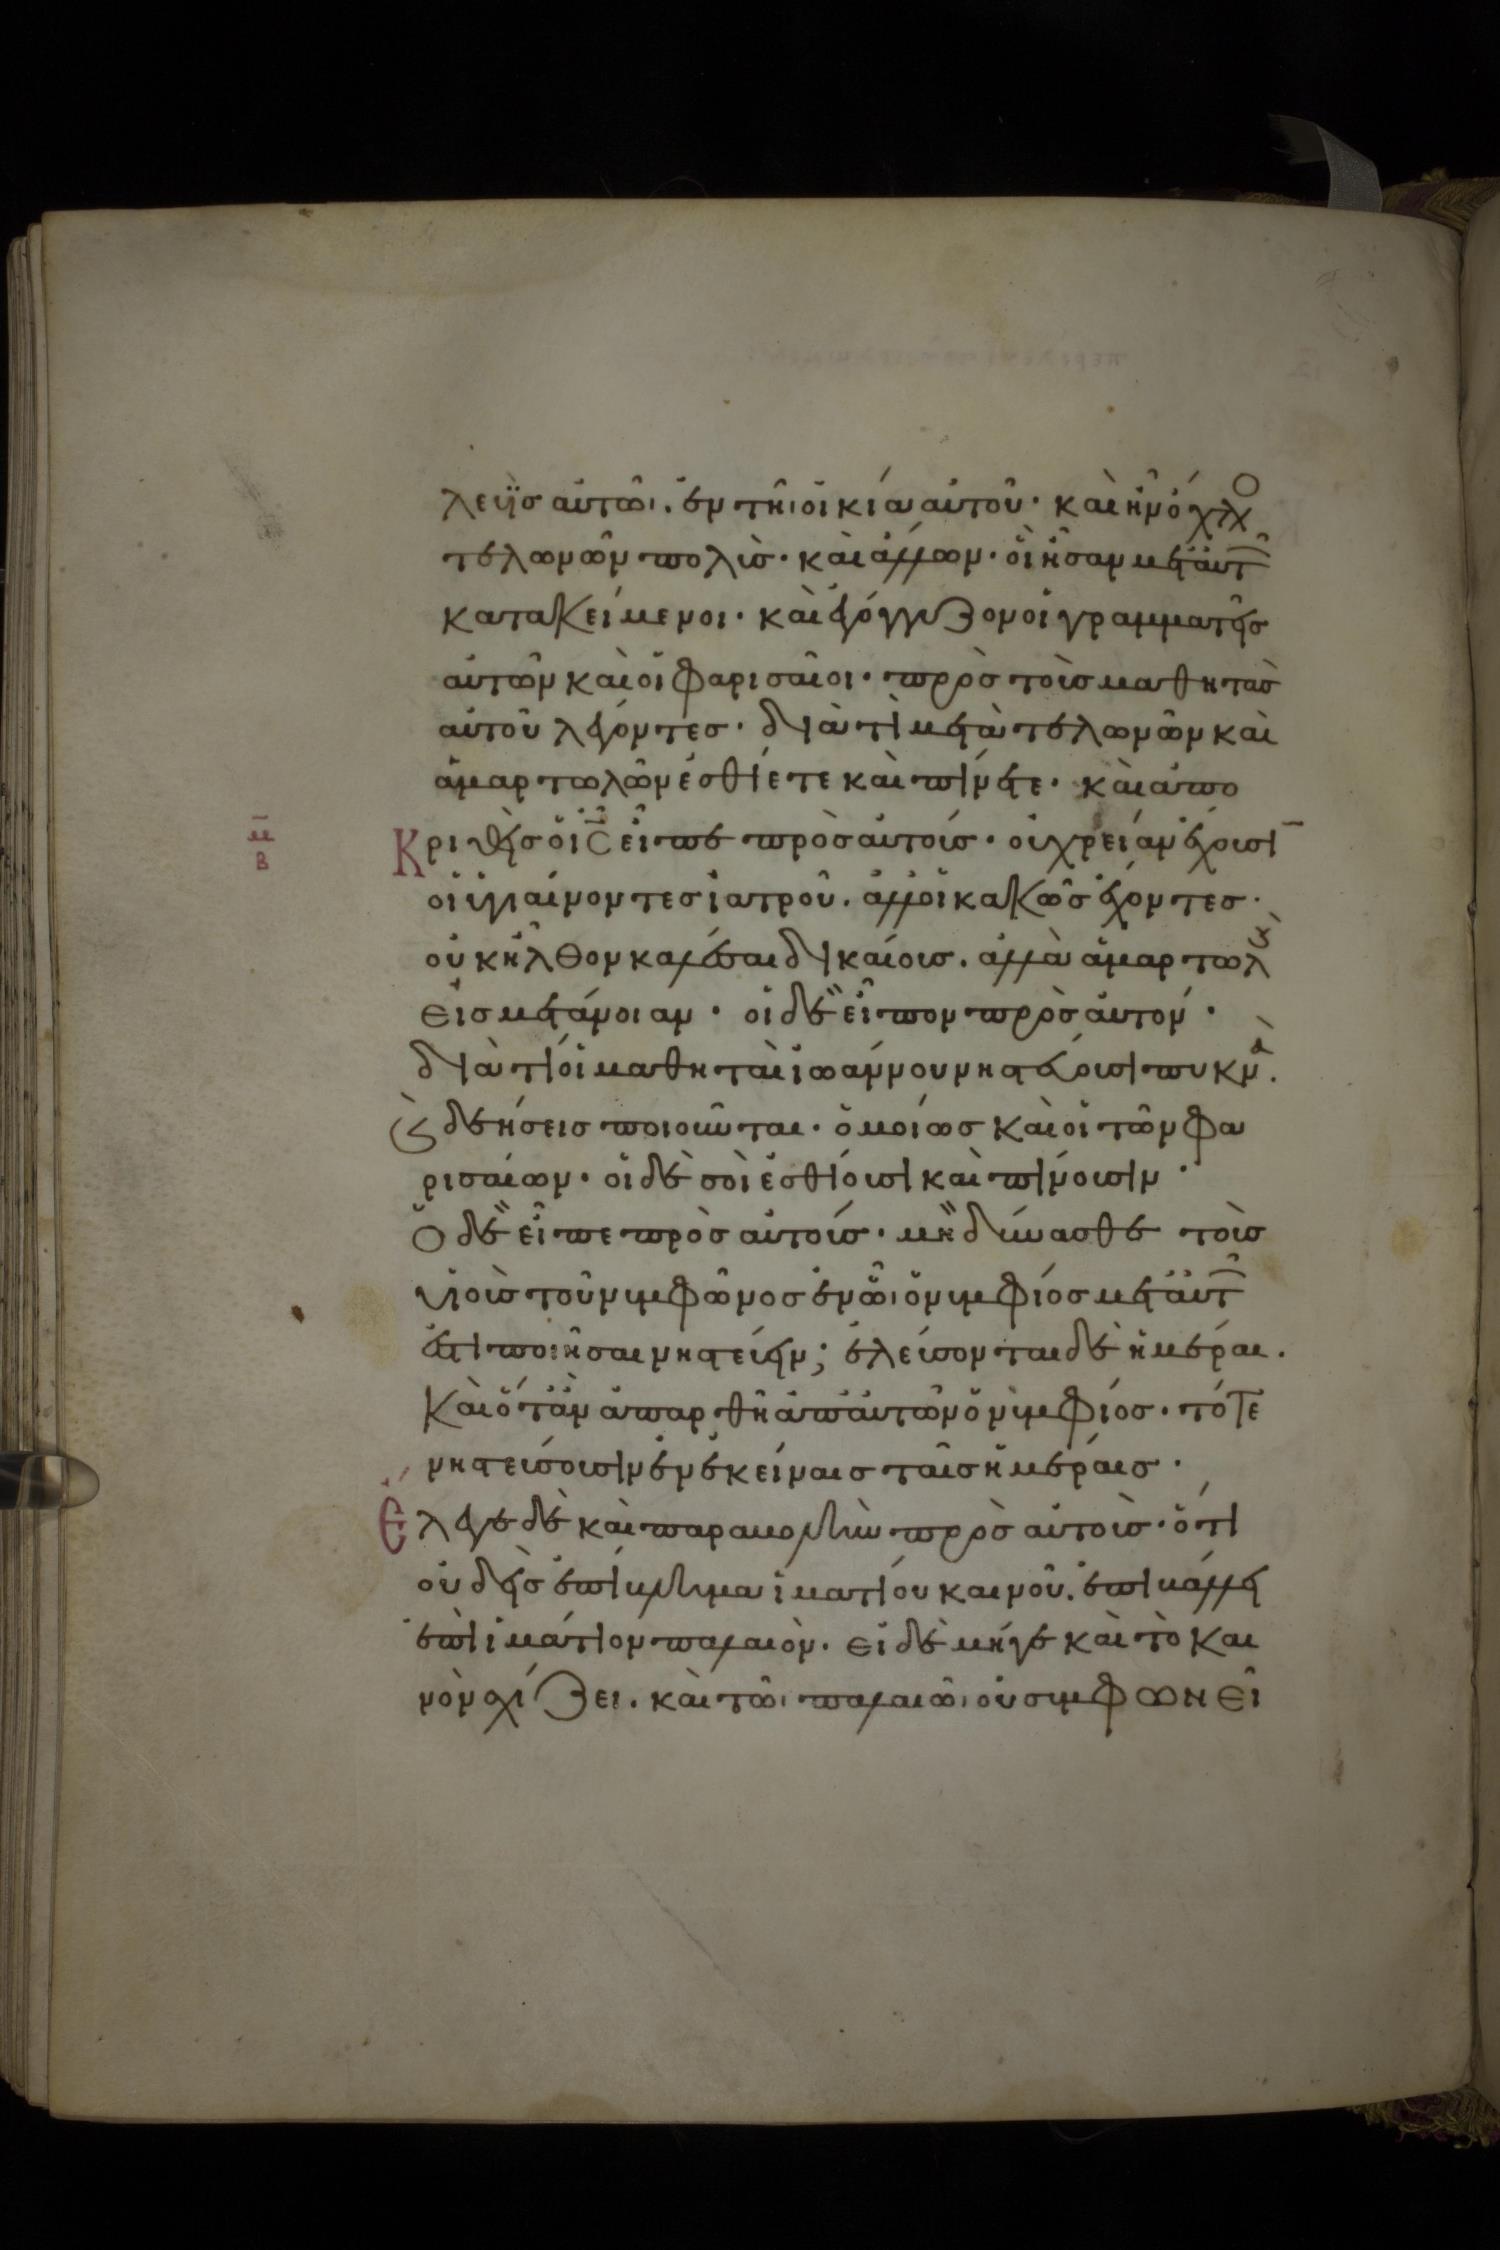 λεϋῒς αὐτῶι· ἐν τῆι οἰκία αὐτοῦ· καὶ ἦν ὄχλο
τελωνῶν πολὺς· καὶ ἄλλων· οἳ ἦσαν μετ' αὐτ
κατακείμενοι· καὶ ἐγόγγυζον οἱ γραμματεῖς
αὐτῶν καὶ οἱ φαρισαῖοι· πρὸς τοὺς μαθητὰς
αὐτοῦ λέγόντες· διὰ τὶ μετὰ τελωνῶν καὶ
ἁμαρτωλῶν ἐσθίετε καὶ πίνετε· καὶ ἀπο
μβ
Κριθεὶς ὁ ις εἶπε πρὸς αὐτούς· οὐ χρείαν ἔχουσι
οἱ ὑγιαίνοντες ἰατροῦ· ἀλλ' οἱ κακῶς ἔχοντες·
οὐκ ἦλθον καλέσαι δικαίους· ἀλλὰ ἁμαρτωλοὺς
εἰς μετάνοιαν· οἱ δὲ εἶπον πρὸς αὐτόν·
διὰ τί οἱ μαθηταὶ ἰωάννου νηστεύουσι πυκνὰ·
καὶ δεήσεις ποιοῦνται· ὁμοίως καὶ οἱ τῶν φα
ρισαίων· οἱ δὲ σοὶ ἐσθίουσι καὶ πίνουσιν·
Ὁ δὲ εἶπε πρὸς αὐτούς· μὴ δύνασθε τοὺς
υἱοὺς τοῦ νυμφῶνος ἐν ὧι ὁ νυμφίος μετ' αὐτ
ἐστι ποιῆσαι νηστεύειν; ἐλεύσονται δὲ ἡμέραι·
Καὶ ὅταν ἀπαρθῆ ἀπ' αὐτῶν ὁ νυμφίος· τότε
νηστεύσουσιν ἐν ἐκείναις ταῖς ἡμέραις·
Ἔλεγε δὲ καὶ παραβολὴν πρὸς αὐτοὺς· ὅτι
οὐδεὶς ἐπίβλημα ἱματίου καινοῦ· ἐπιβάλλει
ἐπὶ ἱμάτιον παλαιὸν· εἰ δὲ μήγε καὶ τὸ και
νὸν σχίζει· καὶ τῶι παλαιῶι οὐ συμφωνεῖ